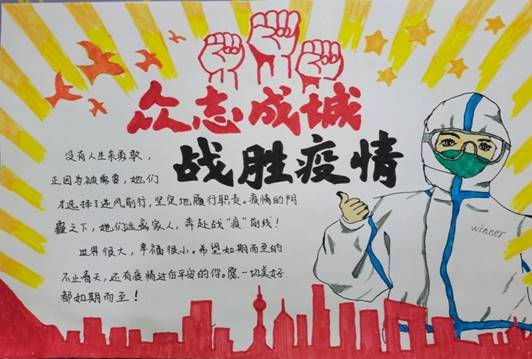 众志成城
战胜疫情
没有人生来勇敢，
正因为被需要，她们
才选择了逆风前行，坚定地履行职责。疫情的阴
霾之下，她们远离家人，奔赴战“疫”前线！
世界很大，幸福很小。希望如期而至的
不止春天，还有疫情过后平安的你。愿一切美好
都如期而至！
winner